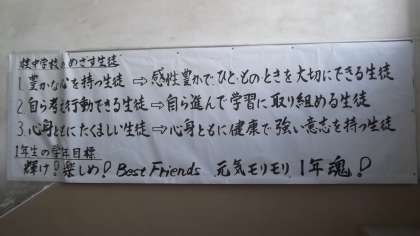 桂中学校がめざす生徒
1. 豊かな心を持つ生徒 ⇨ 感性豊かで ひと、ものときを大切にできる生徒
2. 自ら考え行動できる生徒 ⇨ 自ら進んで学習に取り組める生徒
3. 心身ともにたくましい生徒 ⇨ 心身ともに健康で強い意志を持つ生徒
1年生の学年目標
輝け!楽しめ! Best Friends 元気モリモリ 1年魂!